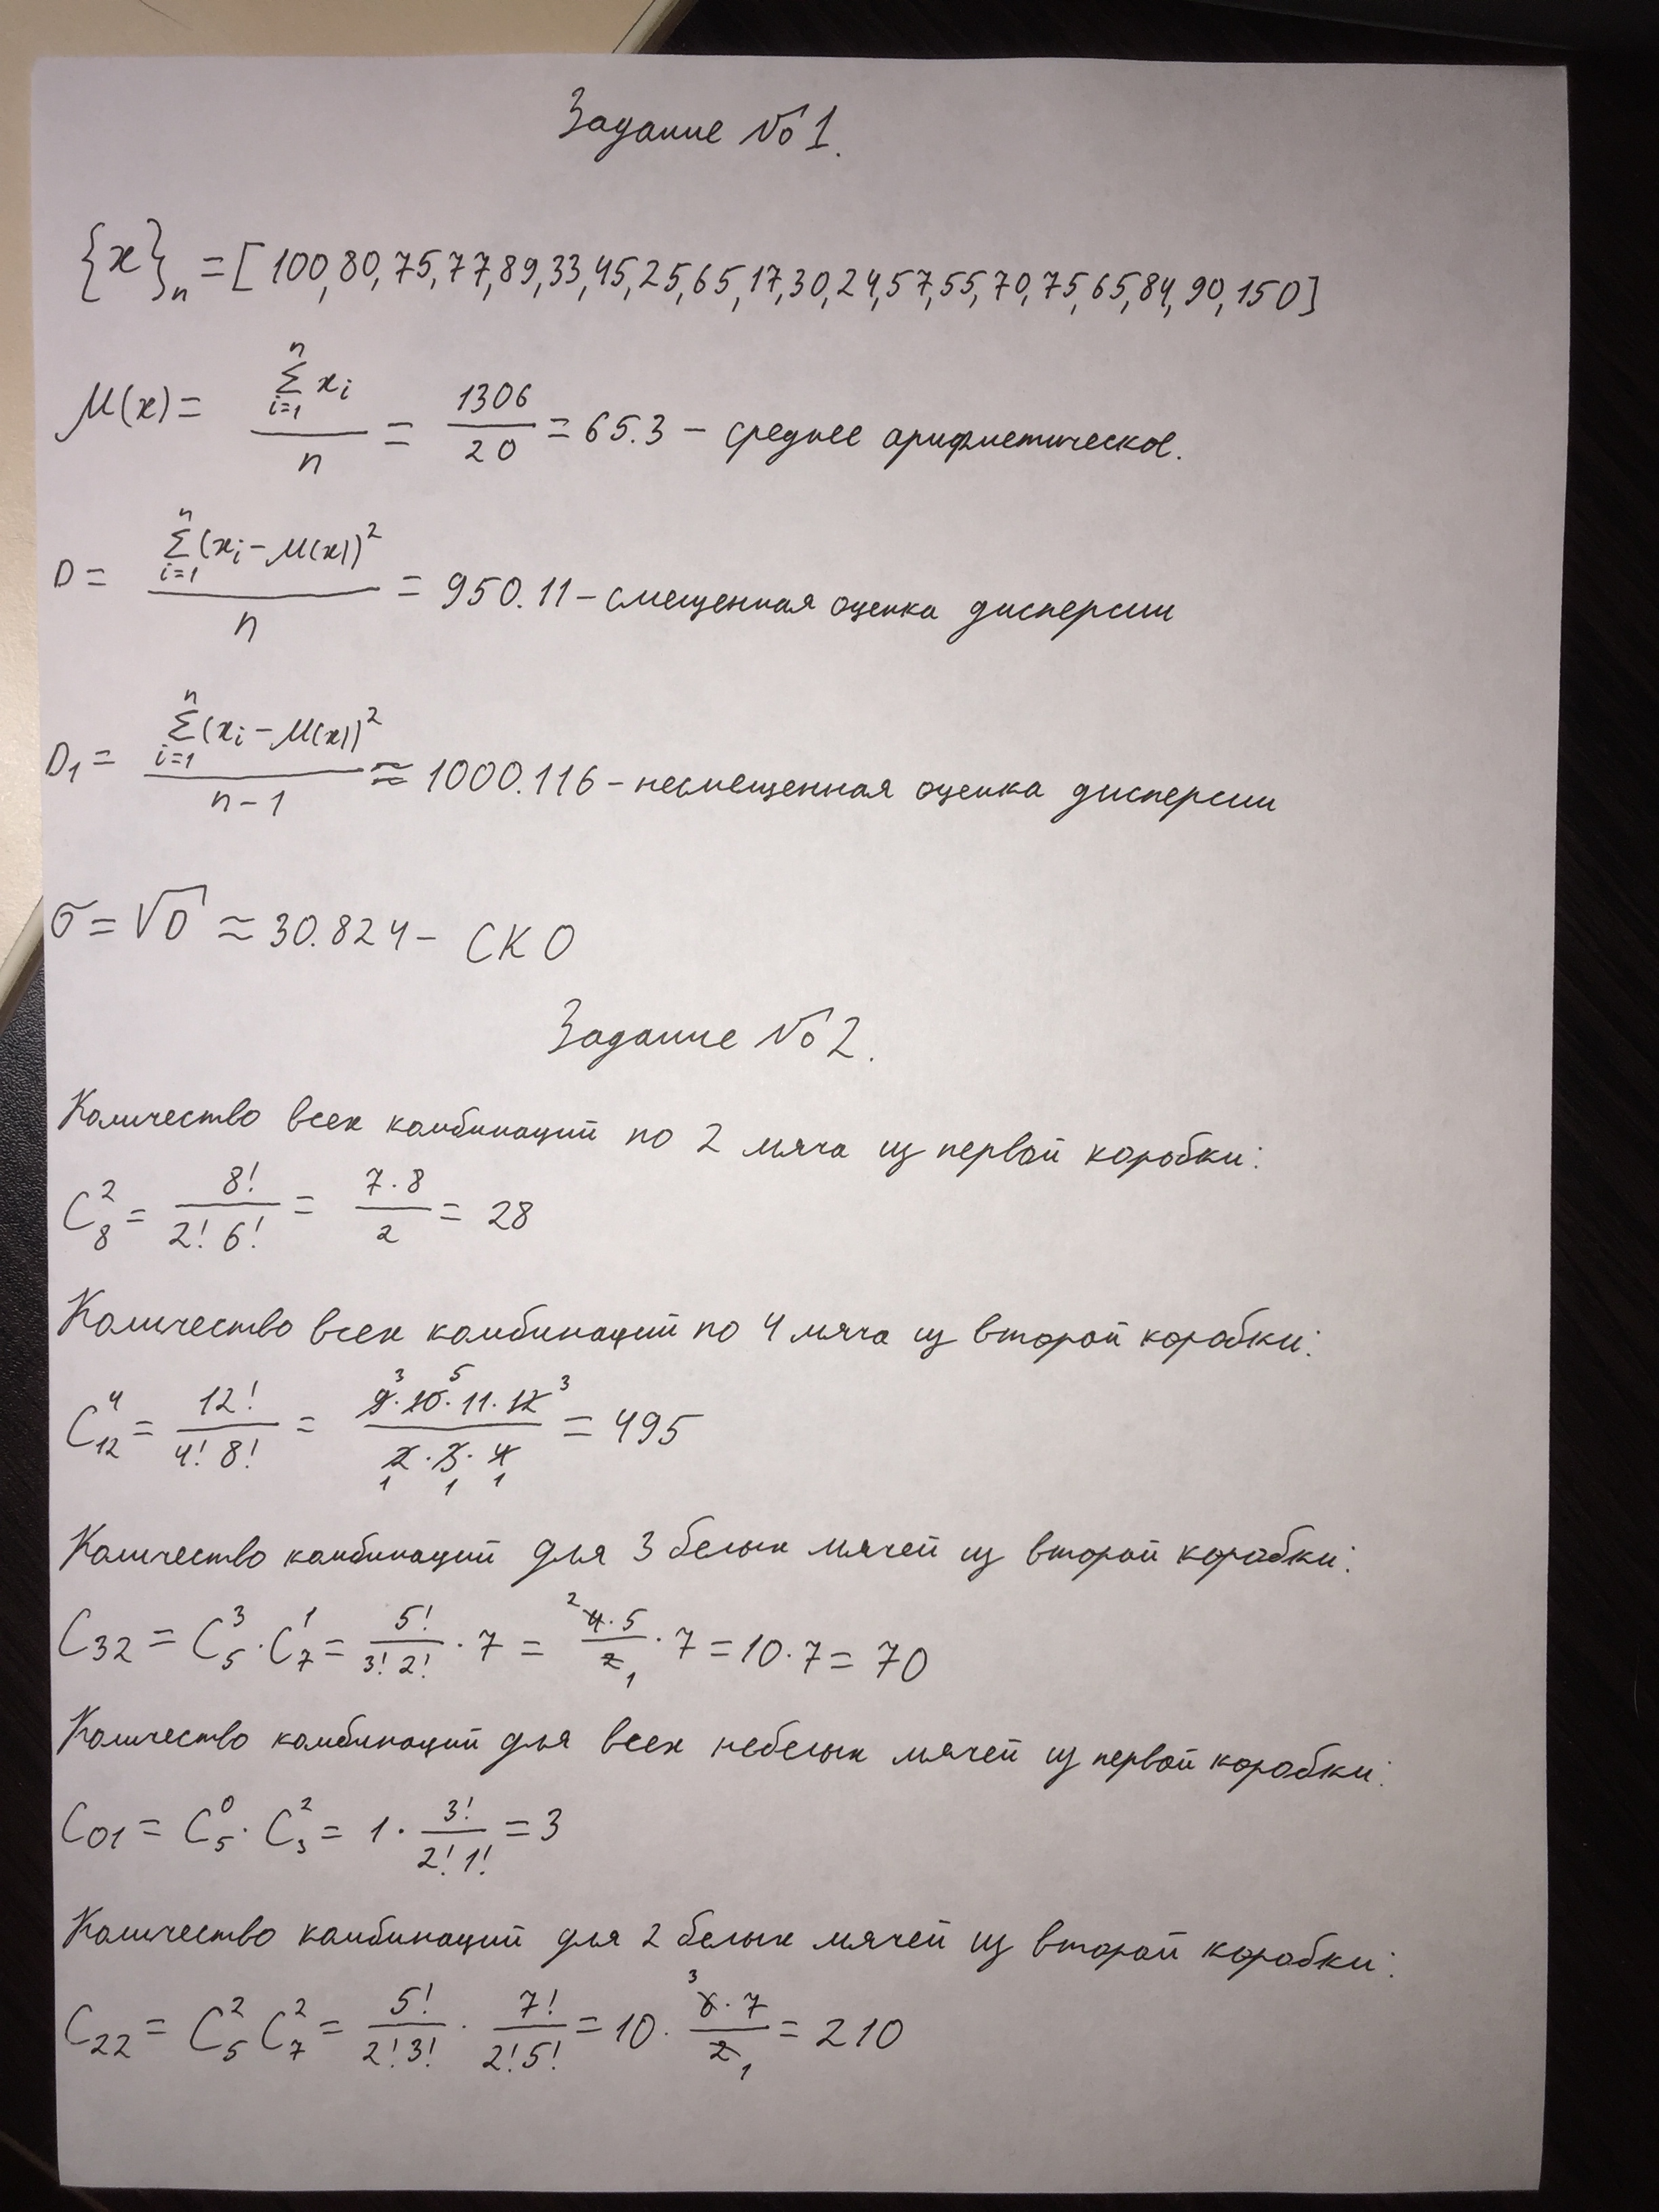 Задание №1.
{x}ₙ = [100, 80, 75, 77, 89, 33, 45, 25, 65, 17, 30, 24, 57, 55, 70, 75, 65, 84, 90, 150]
M(x) = \frac{\sum_{i=1}^{n} x_i}{n} = \frac{1306}{20} = 65.3 – среднее арифметическое.
D = \frac{\sum_{i=1}^{n} (x_i - M(x))^2}{n} = 950.11 – смещенная оценка дисперсии
D_1 = \frac{\sum_{i=1}^{n} (x_i - M(x))^2}{n-1} ≈ 1000.116 – несмещенная оценка дисперсии
σ = √D ≈ 30.824 – СКО
Задание №2.
Количество всех комбинаций по 2 мяча из первой коробки:
C_8^2 = \frac{8!}{2! 6!} = \frac{7 · 8}{2} = 28
Количество всех комбинаций по 4 мяча из второй коробки:
C_{12}^4 = \frac{12!}{4! 8!} = \frac{9^3 · 10^5 · 11 · 12^3}{2_1 · 3_1 · 4_1} = 495
Количество комбинаций для 3 белых мячей из второй коробки:
C_{32} = C_5^3 · C_7^1 = \frac{5!}{3! 2!} · 7 = \frac{^2 4 · 5}{2_1} · 7 = 10 · 7 = 70
Количество комбинаций для всех небелых мячей из первой коробки:
C_{01} = C_5^0 · C_3^2 = 1 · \frac{3!}{2! 1!} = 3
Количество комбинаций для 2 белых мячей из второй коробки:
C_{22} = C_5^2 C_7^2 = \frac{5!}{2! 3!} · \frac{7!}{2! 5!} = 10 · \frac{^3 6 · 7}{2_1} = 210